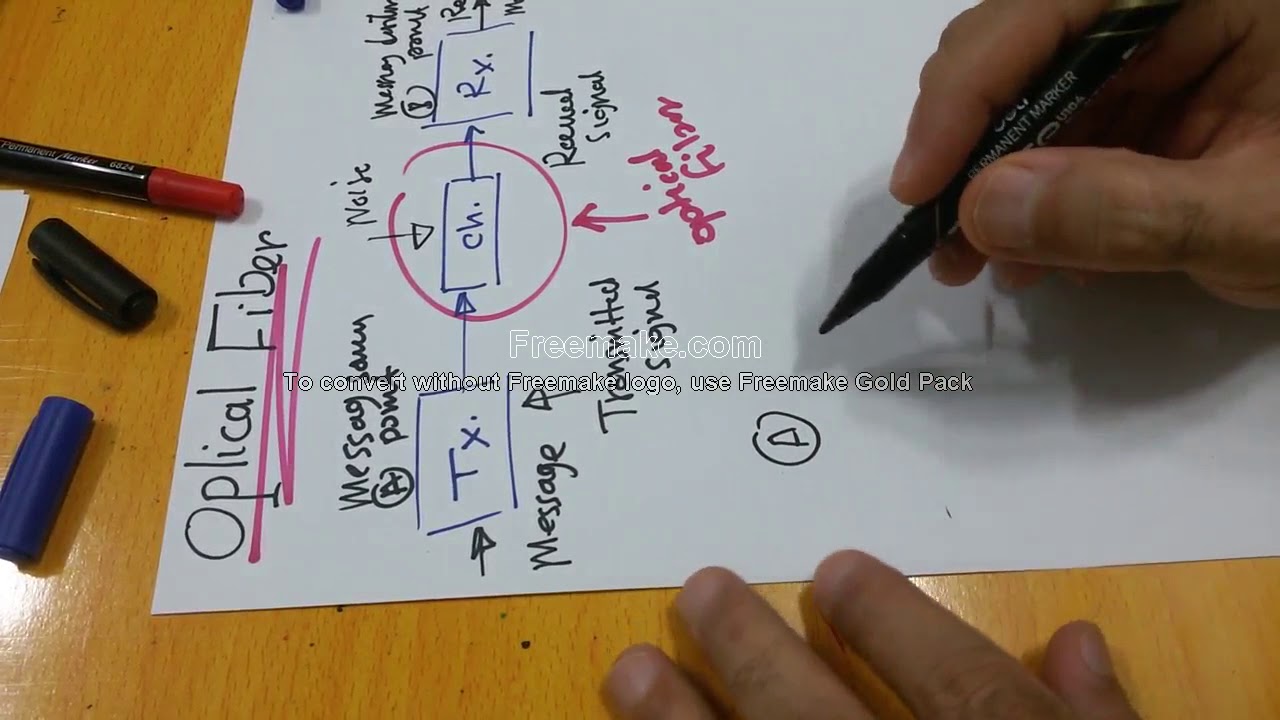 Optical Fiber
Message
point
A
Noise
point
B
Tx.
Ch.
Rx.
Message
Transmitted
Signal
Signal
optical
Fiber
A
Permanent Marker 6824
PERMANENT MARKER
Freemake.com
To convert without Freemake logo, use Freemake Gold Pack